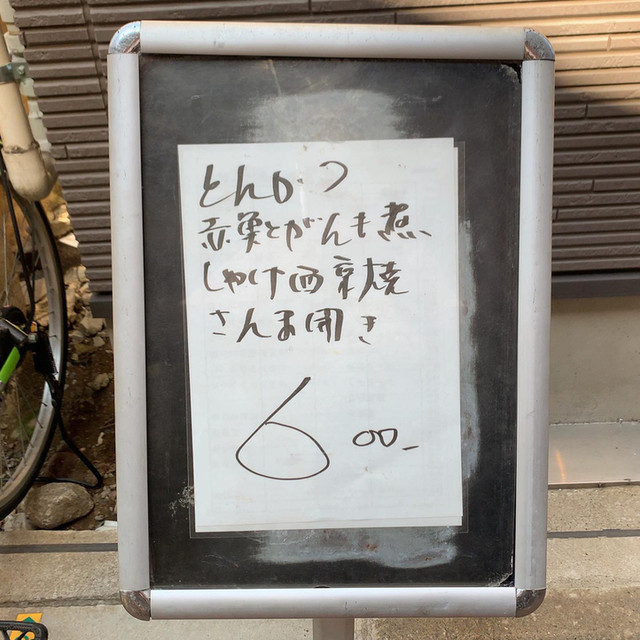 とんかつ
赤巣とがんも煮
しゃけ西京焼
さんま開き
600-